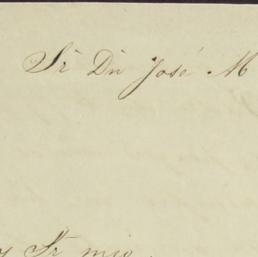 Sr Dn José M
y Sr mio.